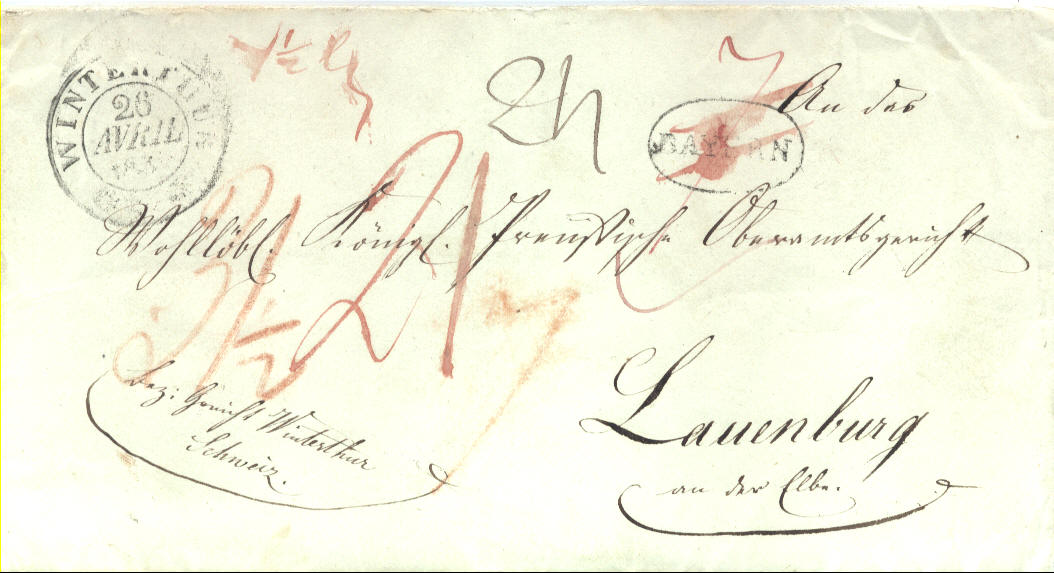 WINTERTHUR
26
AVRIL
BAYERN
An das
Wohllöbl. Königl. Preußische Oberamtsgericht
Lauenburg
an der Elbe.
Bez: Gericht Winterthur
Schweiz.
21